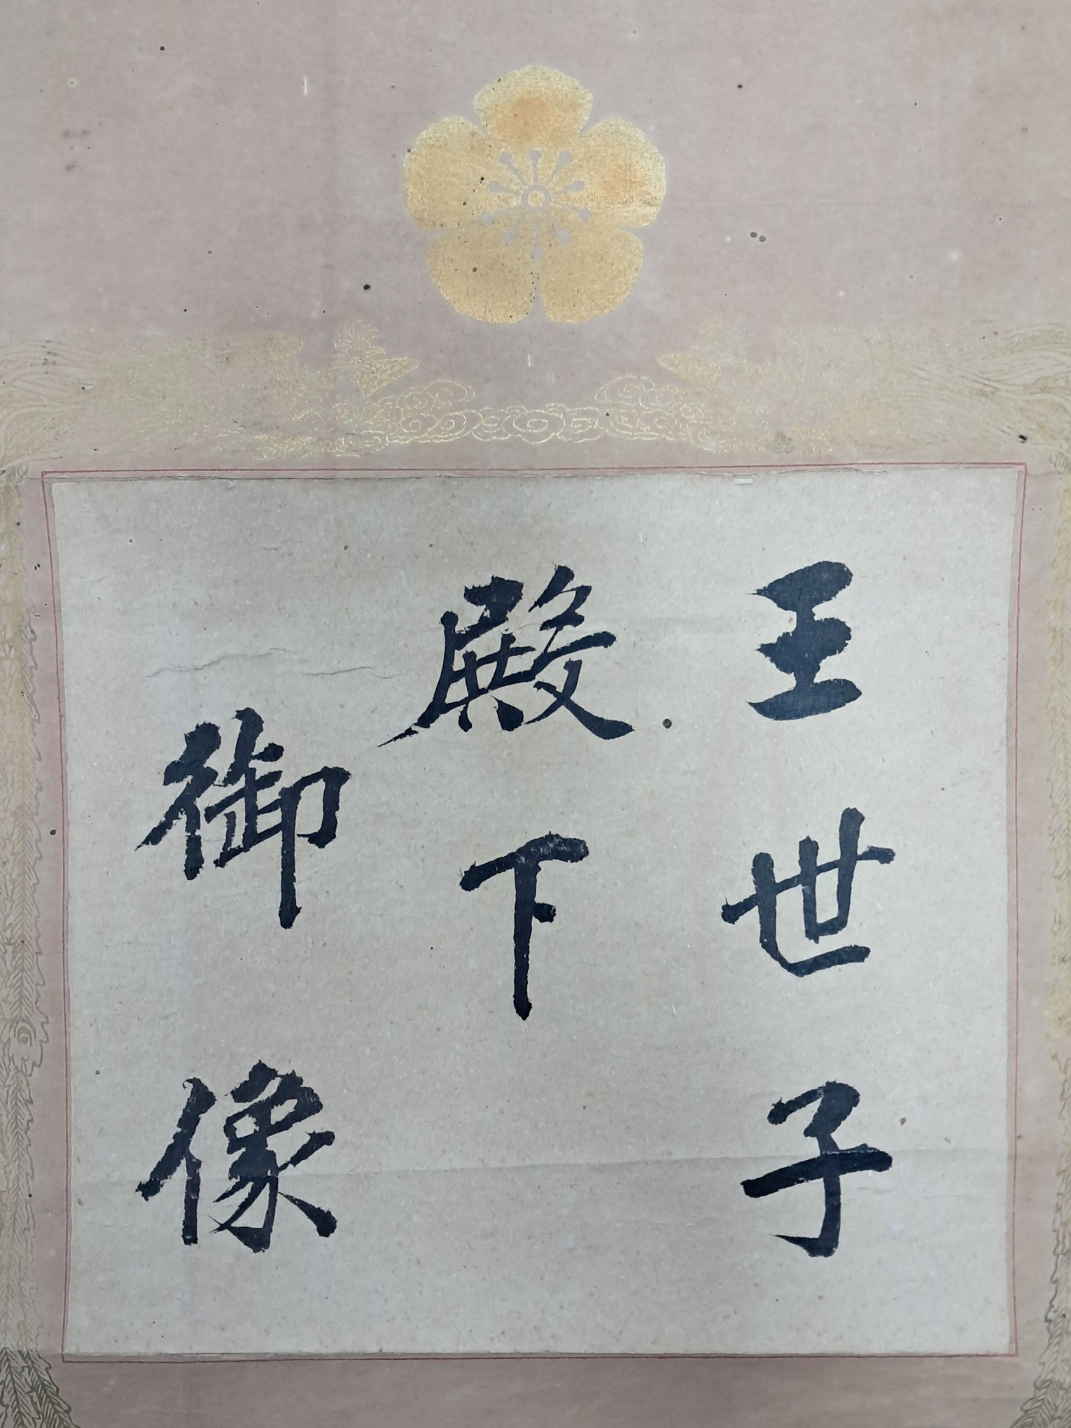 王世子
殿下
御像